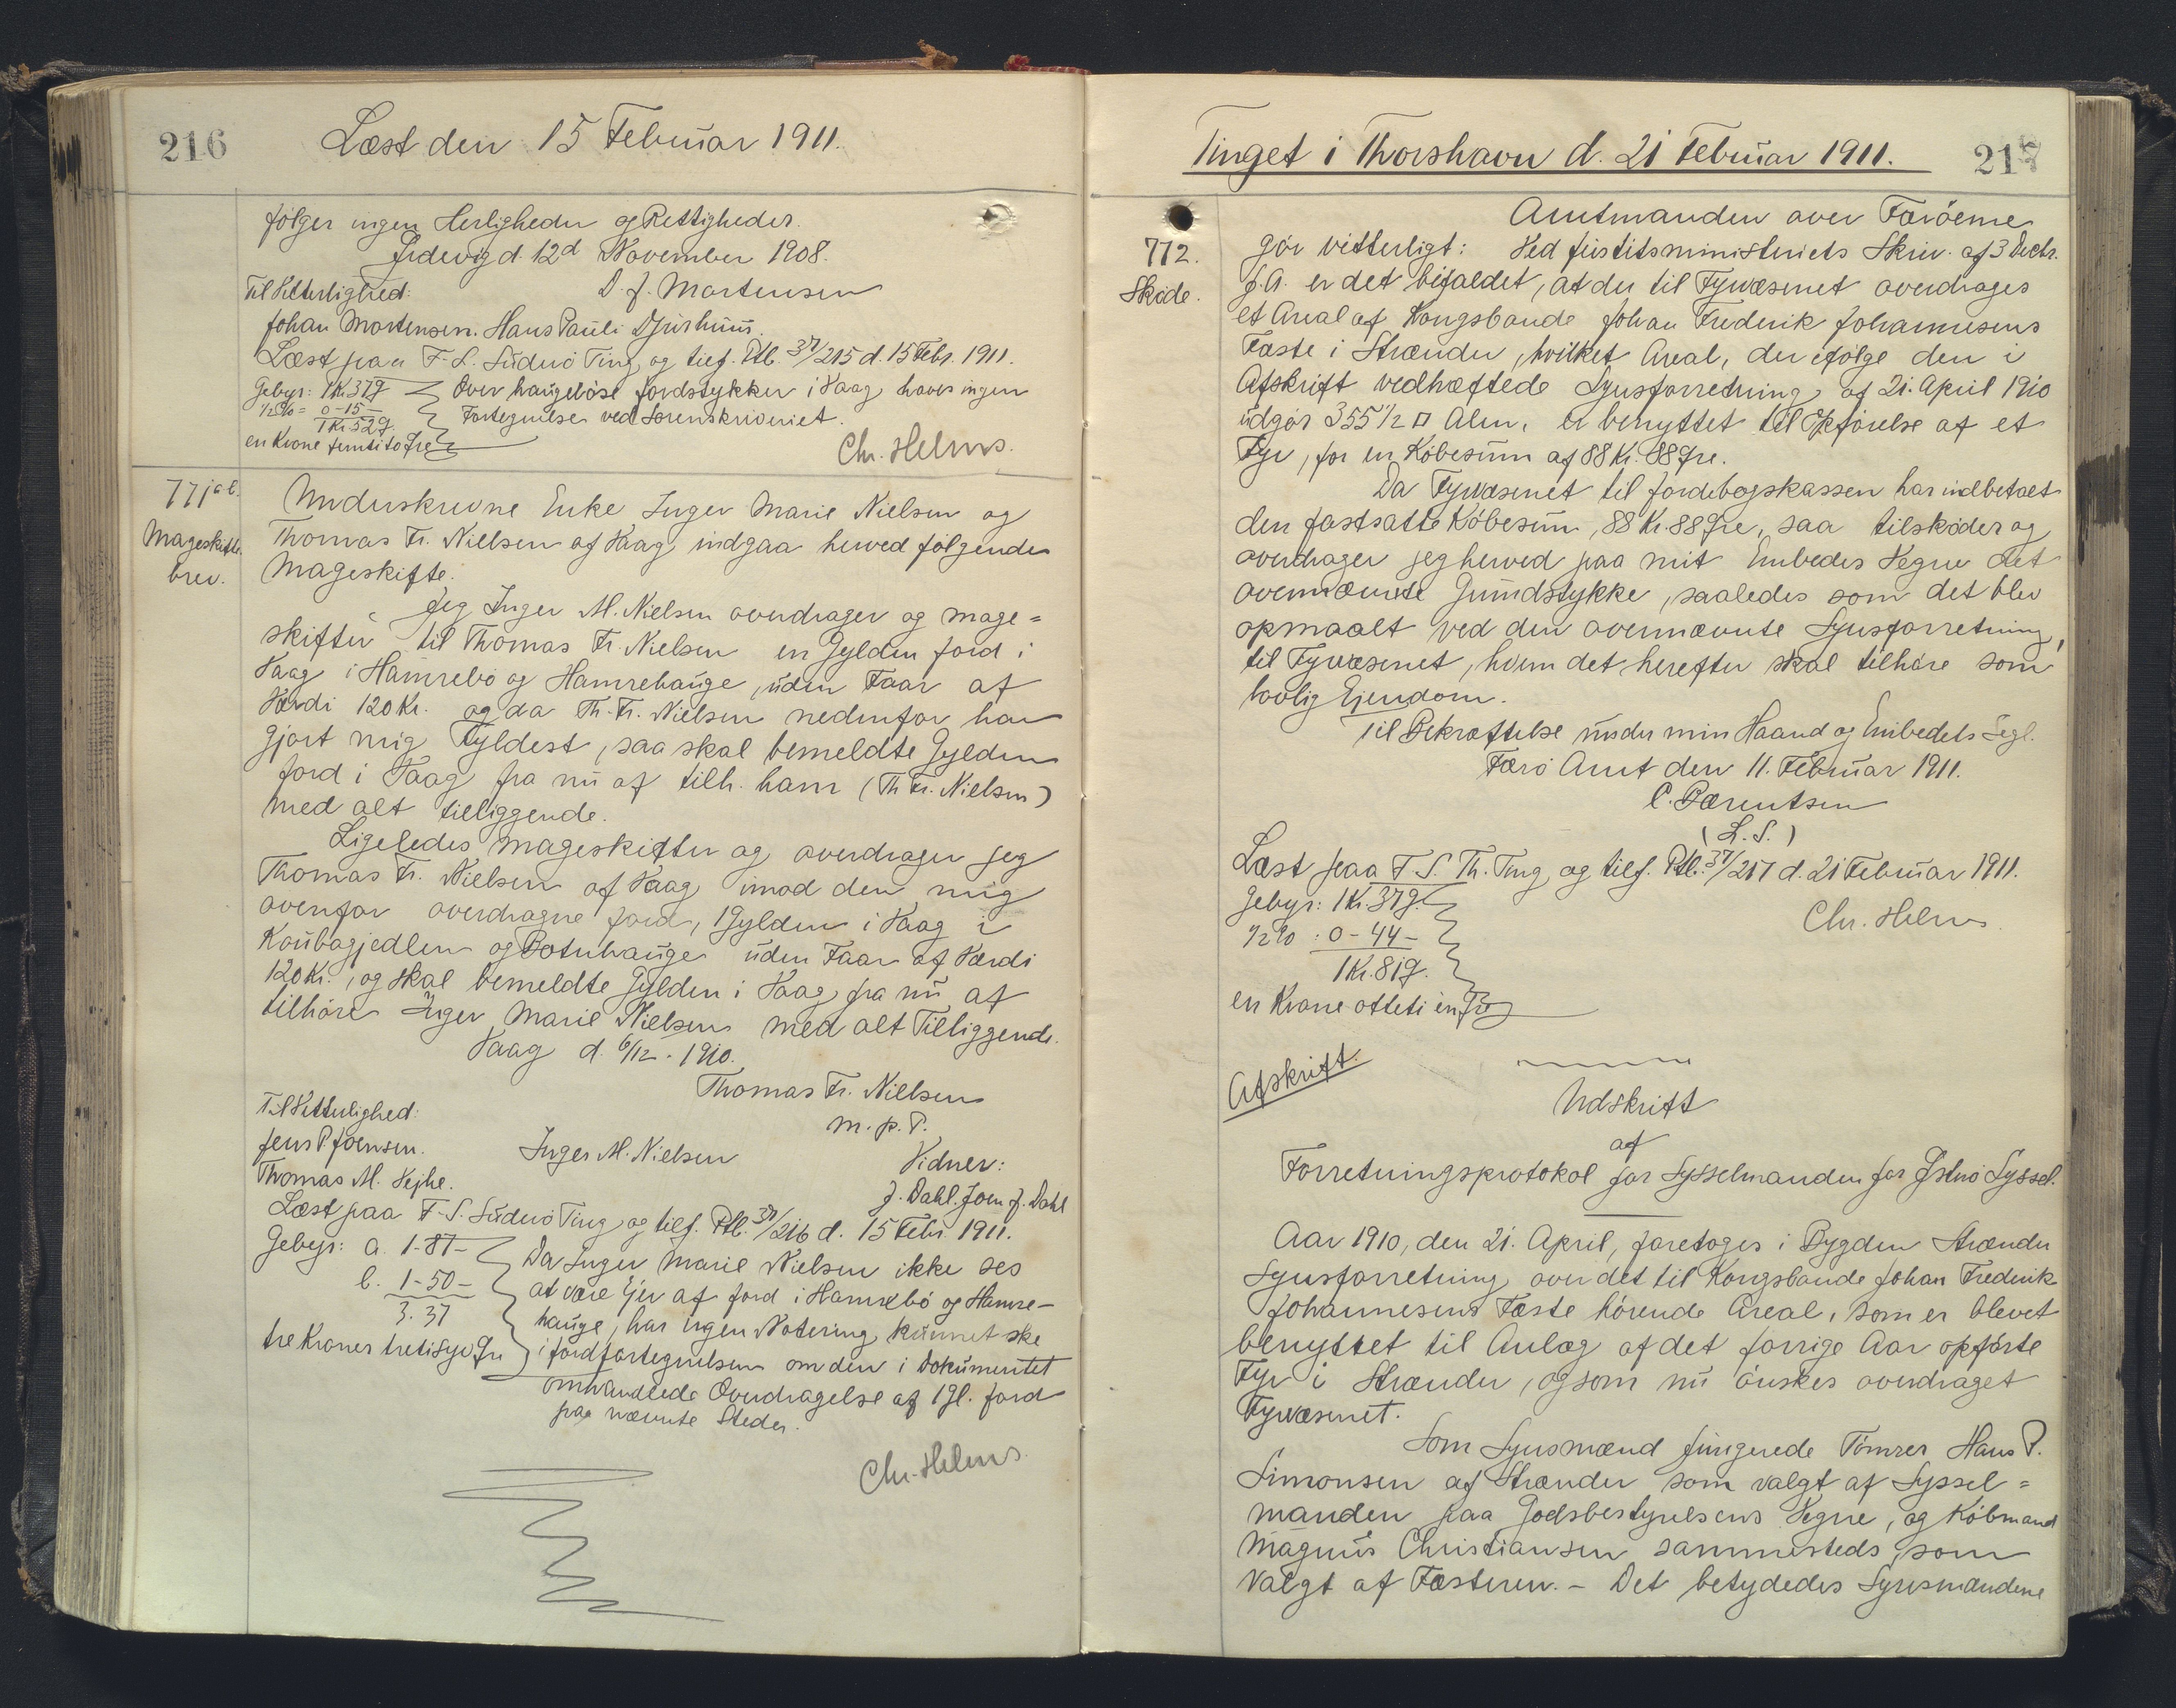 216
Læst den 15 Februar 1911.
følger ingen Herligheder og Rettigheder.
d. 12d November 1908.
Til Vitterlighed:
D. J. Mortensen
Johan Mortensen. Hans Pauli Djurhuus.
Læst paa F. S. Suderø Ting og tilf. Ptl. 37/215 d. 15 Febr. 1911.
Gebyr: 1 Kr. 37 Ø
½% = 0-15-
1 Kr. 52 Ø.
en Krone femtito Øre
Over haugeløse Jordstykker i Vaag haves ingen
Fortegnelse ved Sorenskriveriet.
Chr. Helms.
771 a b.
Mageskifte
brev.
Underskrevne Enke Inger Marie Nielsen og
Thomas Fr. Nielsen af Vaag indgaa herved følgende
Mageskifte.
Jeg Inger M. Nielsen overdrager og mage=
skifter til Thomas Fr. Nielsen en Gylden Jord i
Vaag i Hamrebø og Hamrehauge, uden Faar af
Værdi 120 Kr. og da Th. Fr. Nielsen nedenfor har
gjort mig Fyldest, saa skal bemeldte Gylden
Jord i Vaag fra nu af tilh. ham (Th Fr. Nielsen)
med alt tilliggende.
Ligeledes mageskifter og overdrager jeg
Thomas Fr. Nielsen af Vaag imod den mig
ovenfor overdragne Jord, 1 Gylden i Vaag i
Koubagjedlen og Botnhauge uden Faar af Værdi
120 Kr., og skal bemeldte Gylden i Vaag fra nu af
tilhøre Inger Marie Nielsen med alt Tilliggende.
Vaag d. 6/12. 1910.
Thomas Fr. Nielsen
m. p. P.
Til Vitterlighed:
Jens P. Joensen.
Inger M. Nielsen
Vidner:
Thomas M. Vejhe.
J. Dahl. Joen J. Dahl
Læst paa F. S. Suderø Ting og tilf. Ptl. 37/216 d. 15 Febr. 1911.
Gebyr: a. 1-87-
b. 1-50-
3.37
tre Kroner tretisyv Øre
Da Inger Marie Nielsen ikke ses
at være Ejer af Jord i Hamrebø og Hamre-
hauge, har ingen Notering kunnet ske
i Jordfortegnelsen om den i Dokumentet
omhandlede Overdragelse af 1 Gl. Jord
paa nævnte Steder.
Chr. Helms.
Tinget i Thorshavn d. 21 Februar 1911.
217
772.
Skøde.
Amtmanden over Færøerne
gør vitterligt: Ved Justitsministeriets Skriv. af 3 Decbr.
f. A. er det bifaldet, at der til Fyrvæsenet overdrages
et Areal af Kongsbonde Johan Frederik Johannesens
Fæste i Strænder, hvilket Areal, der ifølge den i
Afskrift vedhæftede Synsforretning af 21. April 1910
udgør 355 1/2 □ Alen, er benyttet til Opførelse af et
Fyr, for en Købesum af 88 Kr. 88 Øre.
Da Fyrvæsenet til Jordebogskassen har indbetalt
den fastsatte Købesum, 88 Kr. 88 Øre, saa tilskøder og
overdrager jeg herved paa mit Embedes Vegne det
ovennævnte Grundstykke, saaledes som det blev
opmaalt ved den ovennævnte Synsforretning,
til Fyrvæsenet, hvem det herefter skal tilhøre som
lovlig Ejendom.
Til Bekræftelse under min Haand og Embedets Segl.
Færø Amt den 11. Februar 1911.
C. Bærentsen
(L. S.)
Læst paa F. S. Th. Ting og tilf. Ptl. 37/217 d. 21 Februar 1911.
Gebyr: 1 Kr. 37 Ø.
½% : 0-44-
1 Kr. 81 Ø.
en Krone otteti en Øre
Chr. Helms
Afskrift.
Udskrift
af
Forretningsprotokol for Sysselmanden for Østerø Syssel.
Aar 1910, den 21. April, foretoges i Bygden Strænder
Synsforretning over det til Kongsbonde Johan Frederik
Johannesens Fæste hørende Areal, som er blevet
benyttet til Anlæg af det forrige Aar opførte
Fyr i Strænder, og som nu ønskes overdraget
Fyrvæsenet.
Som Synsmænd fungerede Tømrer Hans P.
Simonsen af Strænder som valgt af Syssel=
manden paa Godsbestyrelsens Vegne, og Købmand
Magnus Christiansen sammesteds, som
valgt af Fæsteren. – Det betydedes Synsmændene